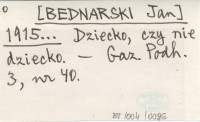 [BEDNARSKI Jan]
1915... Dziecko, czy nie
dziecko. — Gaz. Podh.
3, nr 40.
BT/004/0096